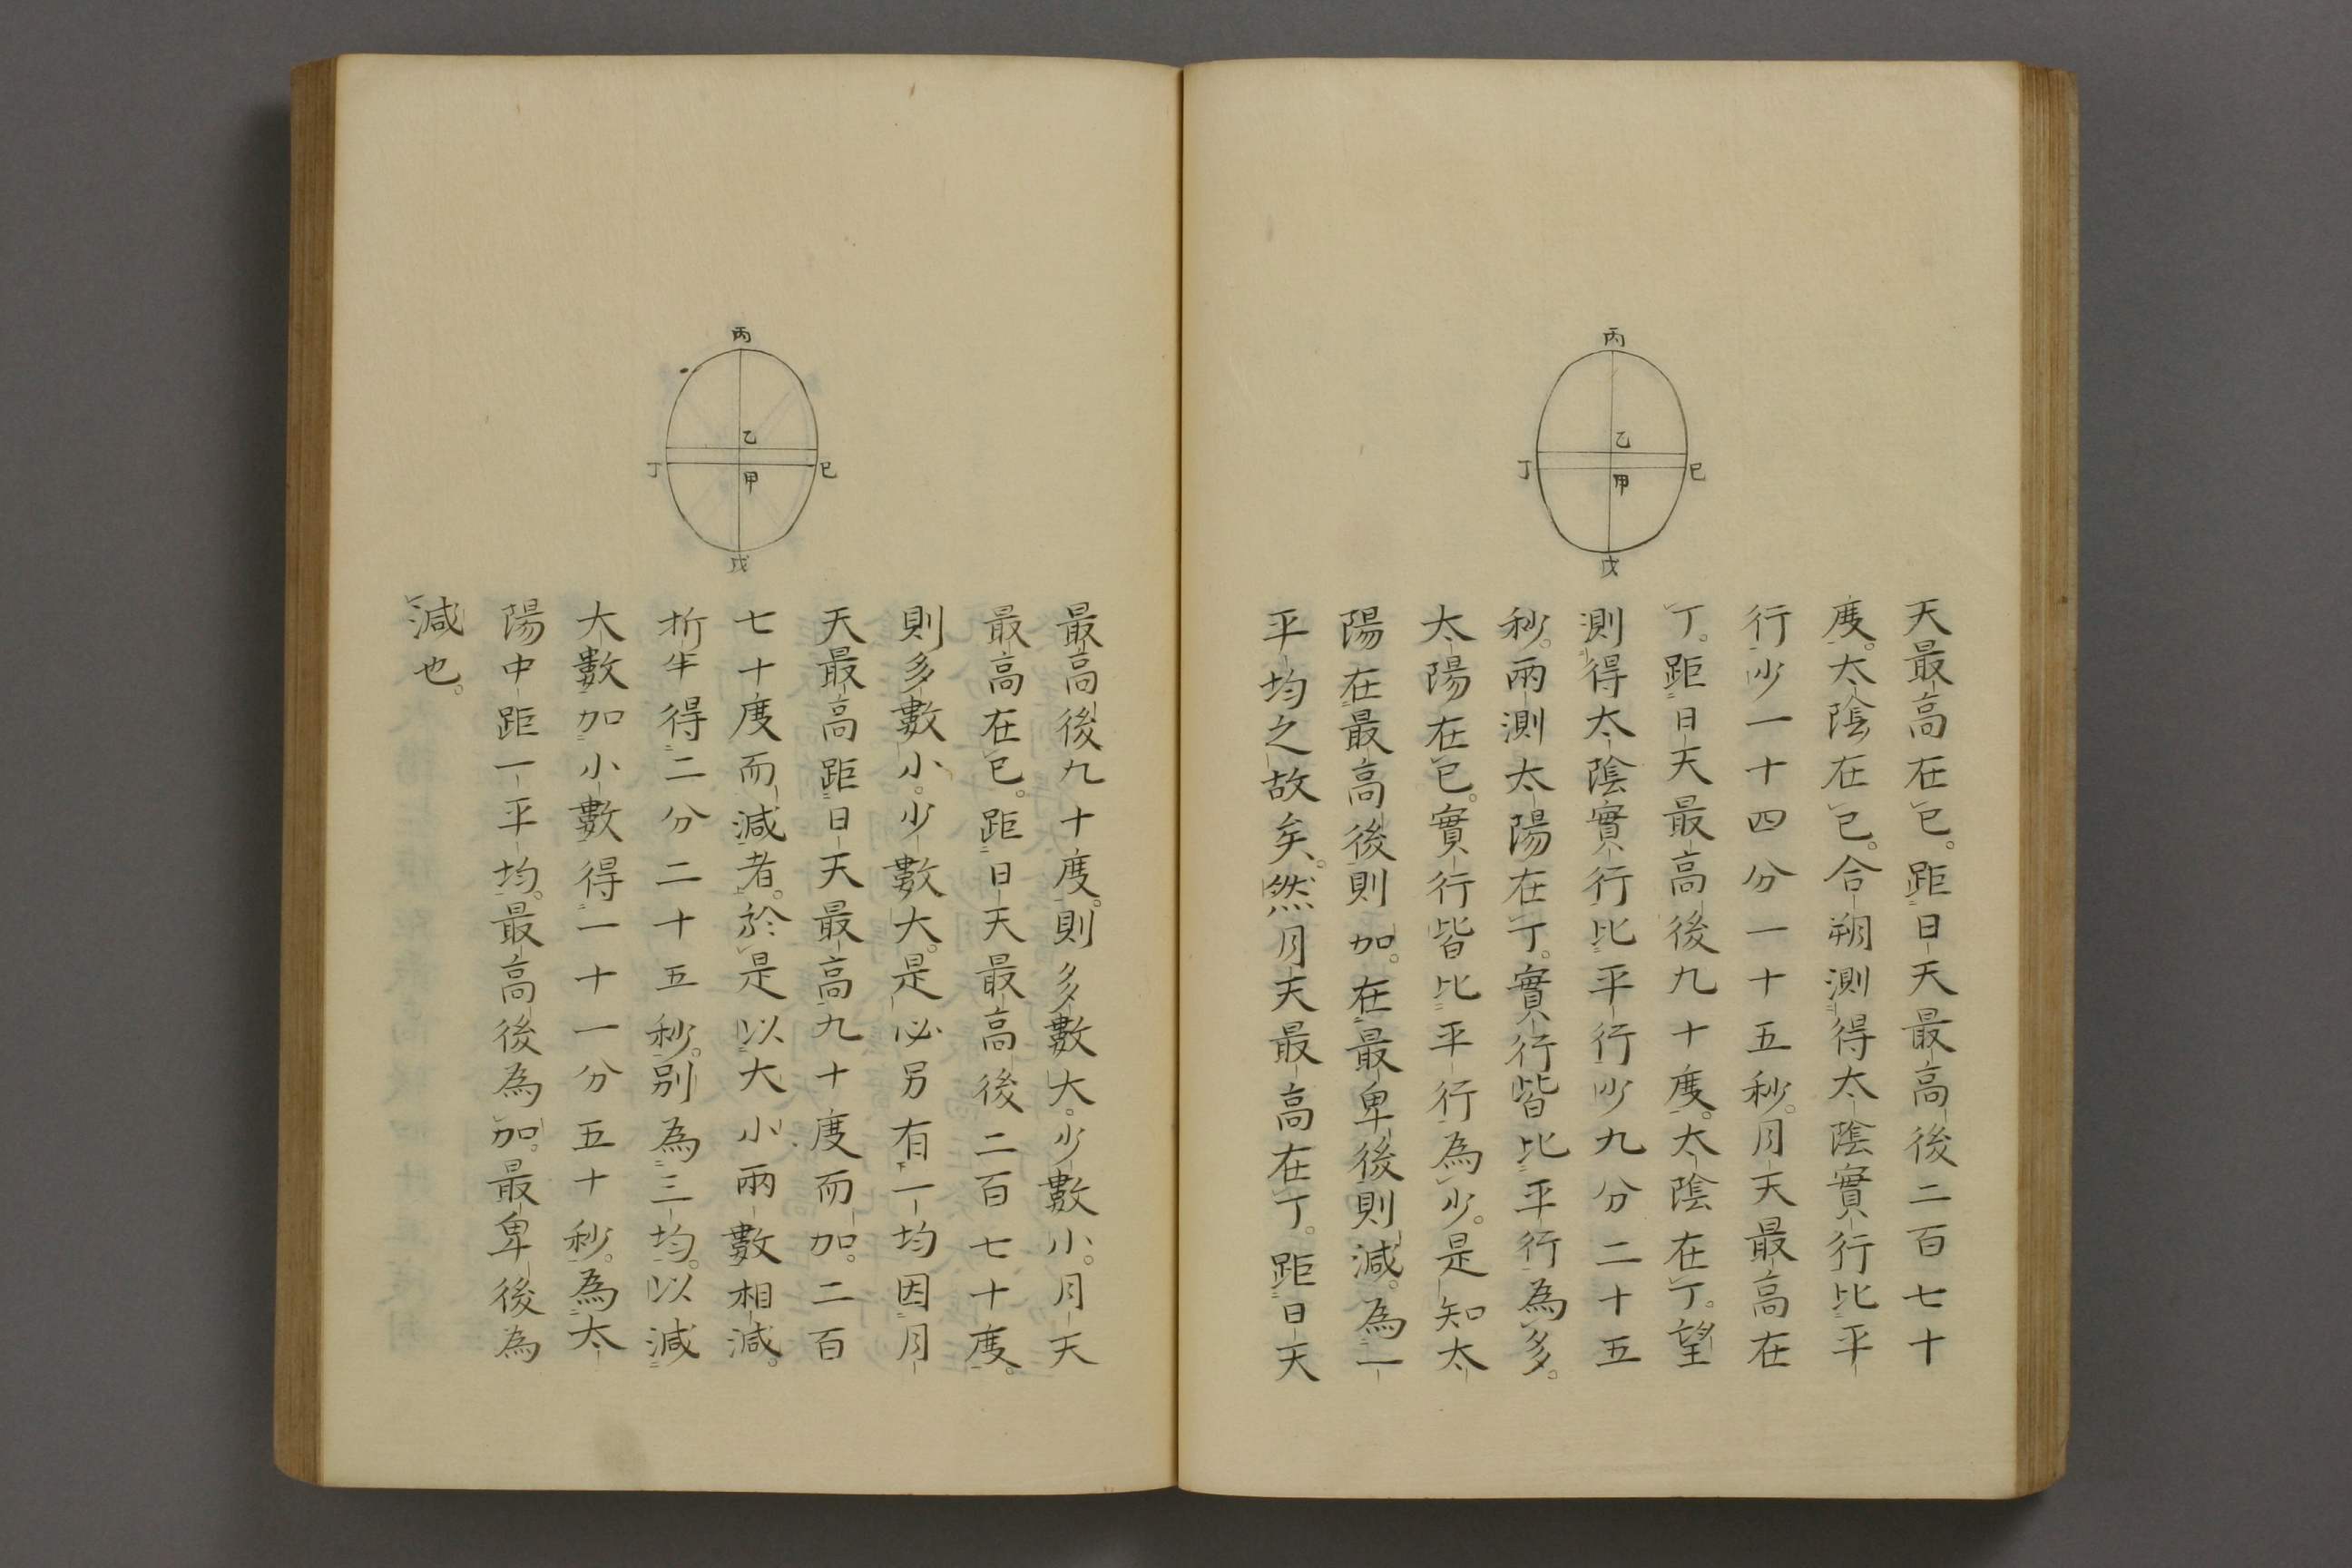 丙
乙
甲
丁
巳
戊
天最高在已。距日天最高後二百七十
度。太陰在已。合朔測得太陰實行比平
行少一十四分一十五秒。月天最高在
丁。距日天最高後九十度。太陰在丁。望
測得太陰實行比平行少九分二十五
秒。兩測太陽在丁。實行皆比平行為多。
太陽在已。實行皆比平行為少。是知太
陽在最高後則加。在最卑後則減。為一
平均之故矣。然月天最高在丁。距日天
丙
乙
甲
丁
巳
戊
最高後九十度。則多數大。少數小。月天
最高在已。距日天最高後二百七十度。
則多數小。少數大。是必另有一均因月
天最高距日天最高九十度而加。二百
七十度而減者。於是以大小兩數相減。
折半得二分二十五秒。別為三均。以減
大數加小數得一十一分五十秒。為太
陽中距一平均。最高後為加。最卑後為
減也。